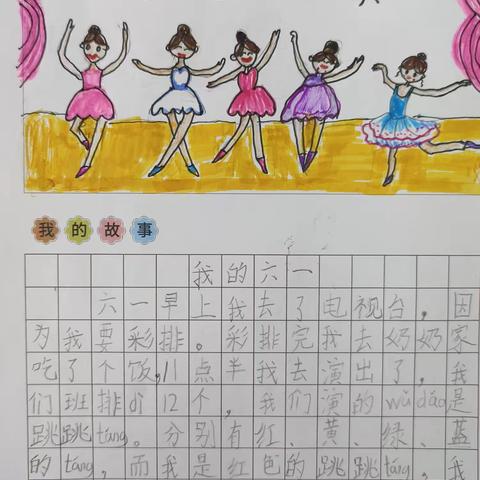 我的故事
我的六一
六一早上我去了电视台，因
为我要彩排。彩排完我去奶奶家
吃了个饭，11点半我去演出了，我
们班排dì12个，我们演的wǔdǎo是
跳跳táng。分别有红、黄、绿、蓝
的táng，而我是红色的跳跳táng，我